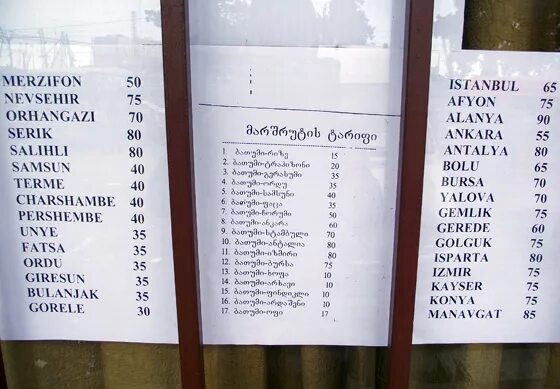 MERZIFON 50
NEVSEHIR 75
ORHANGAZI 70
SERIK 80
SALIHLI 80
SAMSUN 40
TERME 40
CHARSHAMBE 40
PERSHEMBE 40
UNYE 35
FATSA 35
ORDU 35
GIRESUN 35
BULANJAK 35
GORELE 30
მარშრუტის ტარიფი
1. ბათუმი-რიზე 15
2. ბათუმი-ტრაპიზონი 20
3. ბათუმი-გერასუმი 35
4. ბათუმი-ორდუ 35
5. ბათუმი-სამსუნი 40
6. ბათუმი-ფაცა 35
7. ბათუმი-ჩორუმი 50
8. ბათუმი-ანკარა 60
9. ბათუმი-სტამბული 70
10. ბათუმი-ანტალია 80
11. ბათუმი-იზმირი 80
12. ბათუმი-ბურსა 75
13. ბათუმი-ხოფა 10
14. ბათუმი-არხავი 10
15. ბათუმი-ფინდიკლი 10
16. ბათუმი-არდაშენი 10
17. ბათუმი-ოფი 17
ISTANBUL 65
AFYON 75
ALANYA 90
ANKARA 55
ANTALYA 80
BOLU 65
BURSA 70
YALOVA 70
GEMLIK 75
GEREDE 60
GOLGUK 75
ISPARTA 80
IZMIR 75
KAYSER 75
KONYA 75
MANAVGAT 85